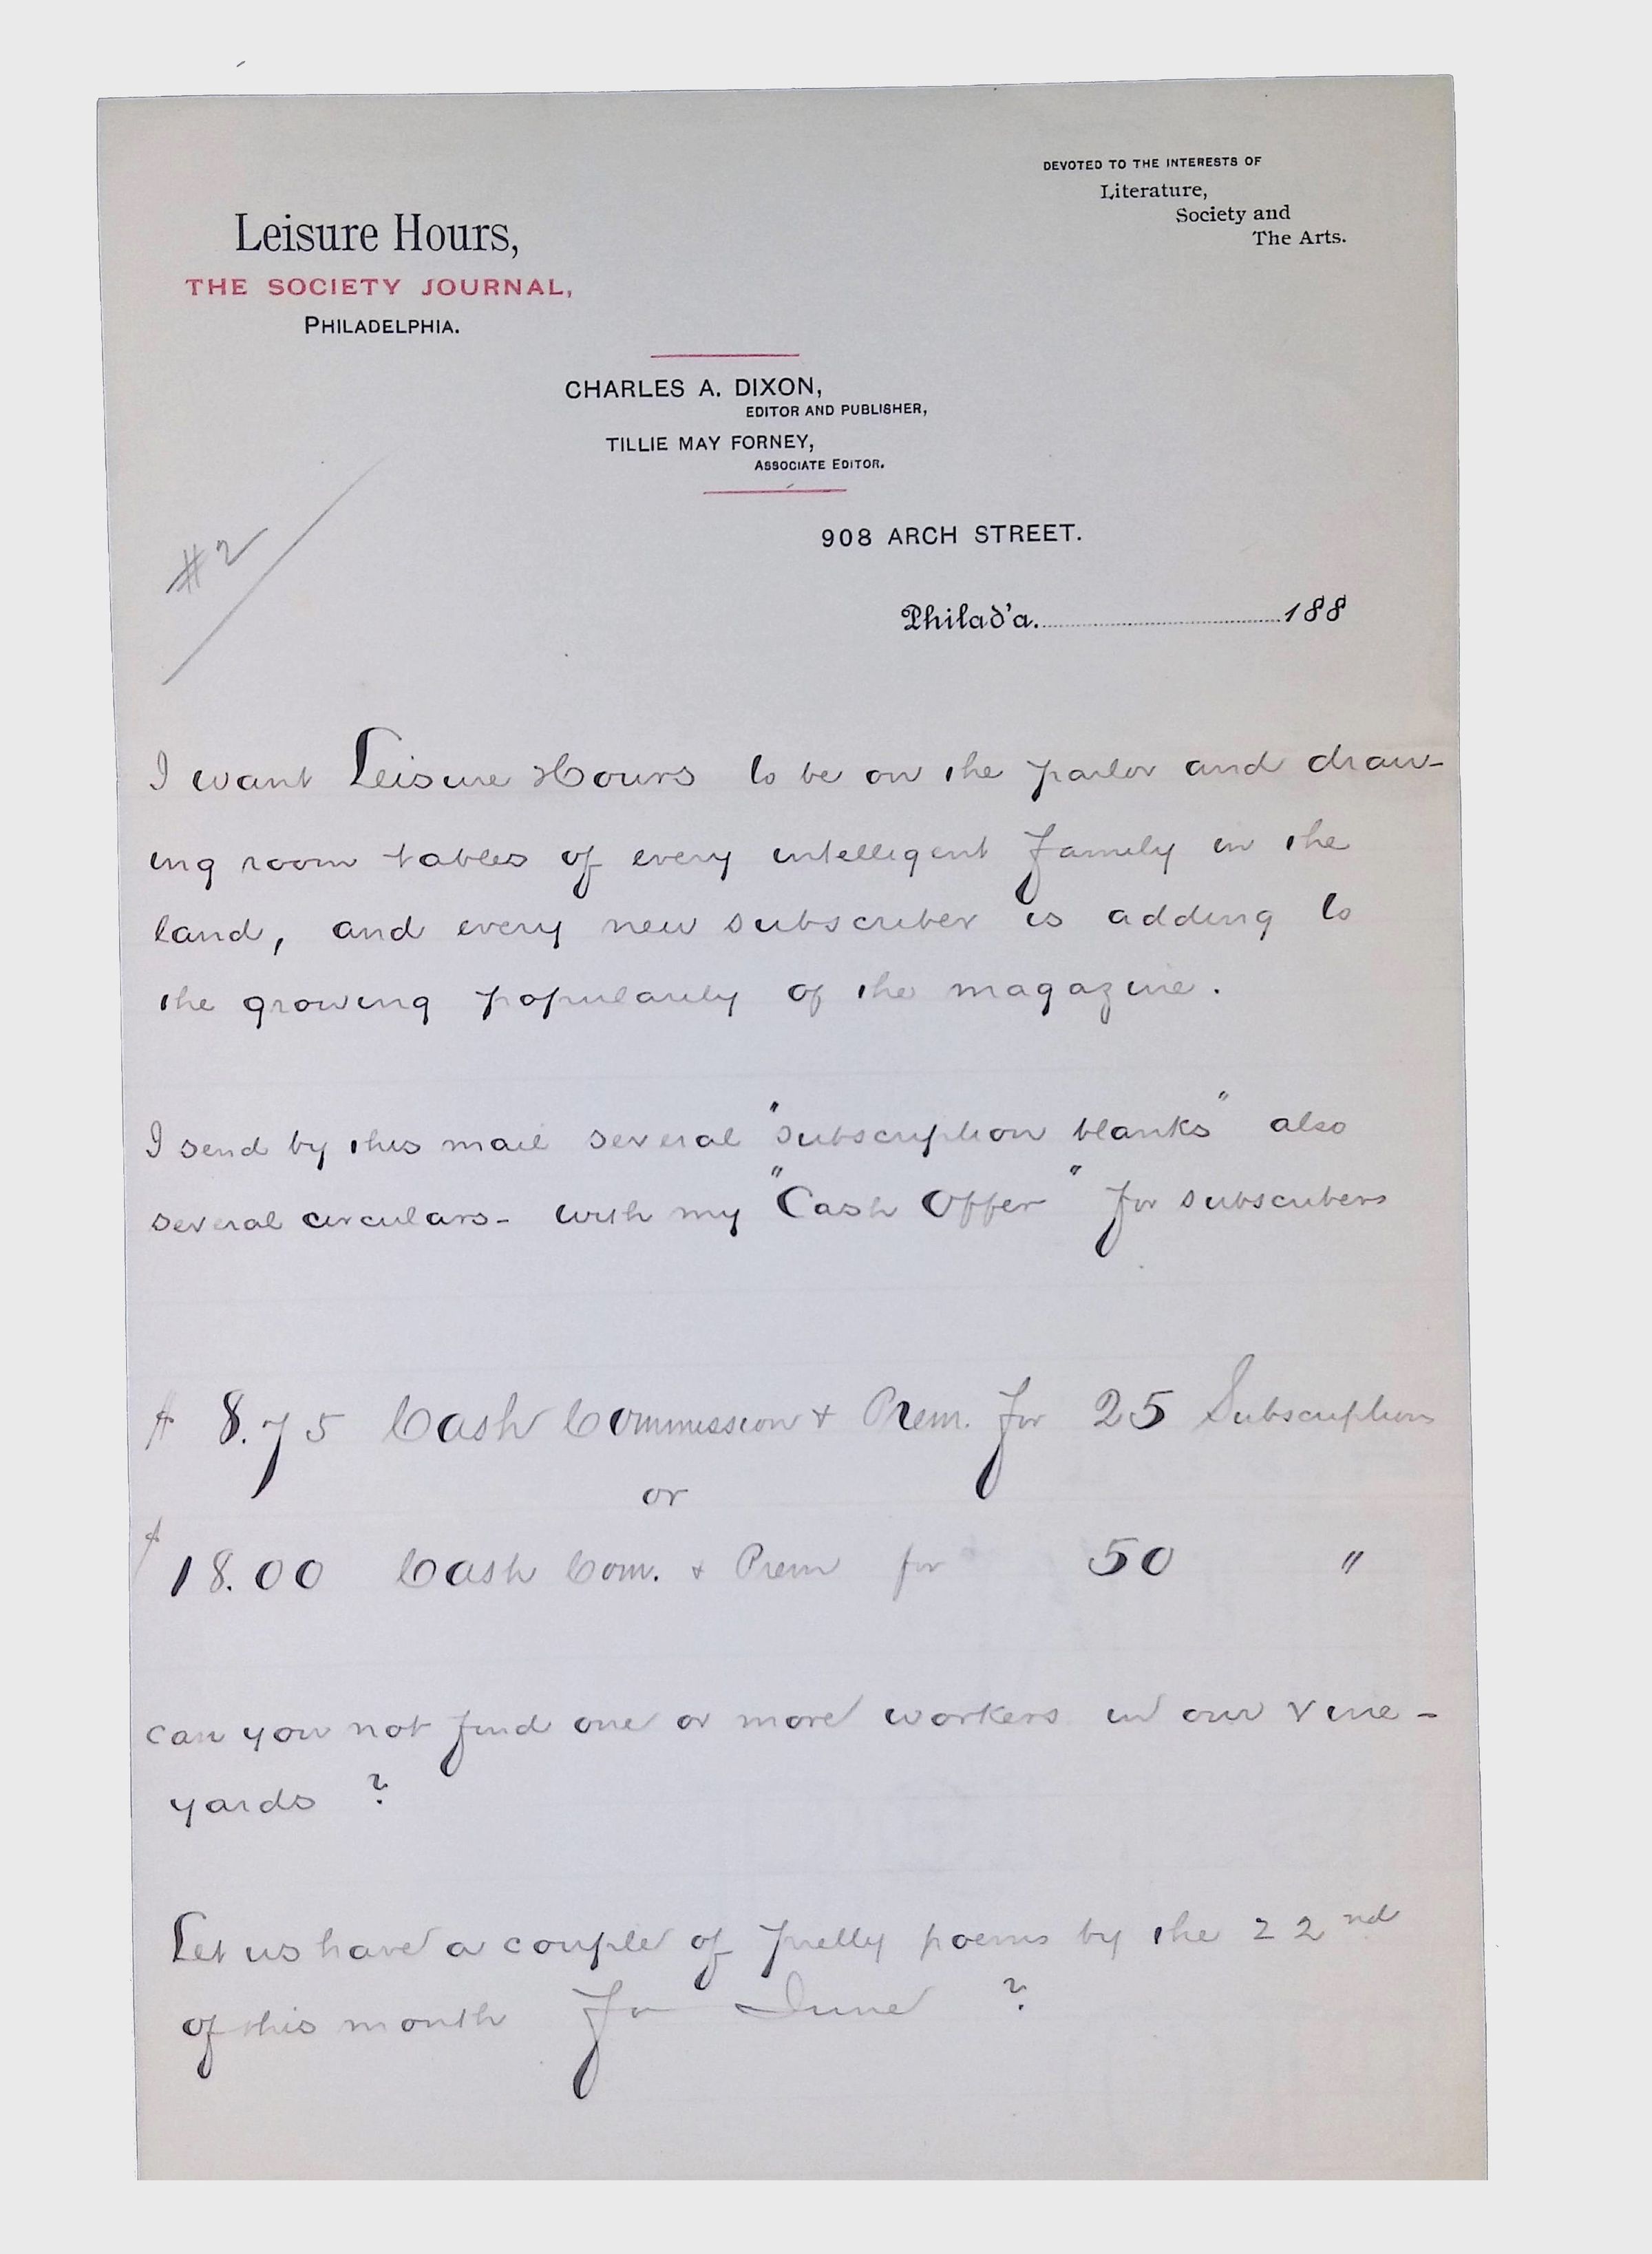 DEVOTED TO THE INTERESTS OF
Literature,
Society and
The Arts.
Leisure Hours,
THE SOCIETY JOURNAL,
PHILADELPHIA.
CHARLES A. DIXON,
EDITOR AND PUBLISHER,
TILLIE MAY FORNEY,
ASSOCIATE EDITOR.
908 ARCH STREET.
#2
Philad'a. 188
I want Leisure Hours to be on the parlor and draw-
ing room tables of every intelligent family in the
land, and every new subscriber is adding to
the growing popularity of the magazine.
I send by this mail several "subscription blanks" also
several circulars - with my "Cash Offer" for subscribers
$ 8.75 Cash Commission & Prem. for 25 Subscriptions
or
$ 18.00 Cash Com. & Prem for 50 "
can you not find one or more workers in our vine-
yards ?
Let us have a couple of pretty poems by the 22nd
of this month for June ?